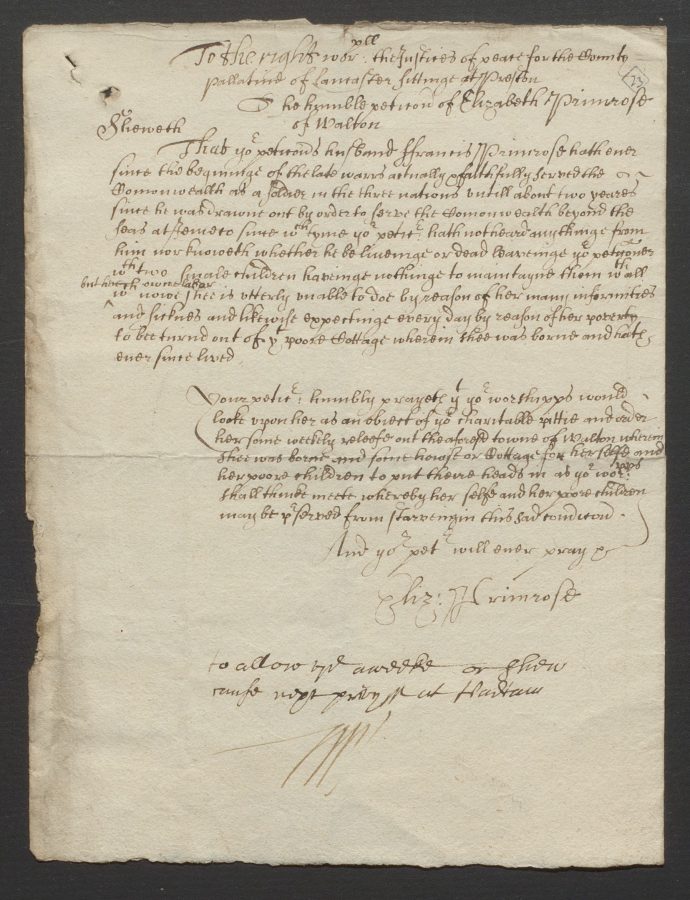 To the right wor:pll the Justices of peace for the County
Pallatine of Lancaster sittinge at Preston
77
The humble peticon of Elizabeth Primrose
of Walton
Sheweth
That yor peticonrs husband ffrancis Primrose hath ever
since the beginninge of the late warrs actually & faithfully served the
Comonwealth as a soldier in the three nations untill about two yeares
since he was drawne out by order to serve the Comonwealth beyond the
seas at Jemeco since wch tyme yor peticr: hath not heard any thinge from
him nor knoweth whether he be liveinge or dead leaveinge yor peticoner
wth two smale children haveinge nothinge to maintayne them wthall
but her owne labor
wch nowe shee is utterly unable to doe by reason of her many infirmities
and sicknes and likewise expectinge every day by reason of her poverty
to bee turnd out of yt poore Cottage wherein shee was borne and hath
ever since lived
Your peticr: humbly prayeth yt yor worshipps would
looke upon her as an object of yor charitable pittie and order
her some weekly releefe out the aforesd towne of Walton wherein
shee was borne and some howse or Cottage for her selfe and
her poore children to put theire heads in as yor worpps:
shall thinke meete whereby her selfe and her poore children
may be pserved from starveing in this sad condicon.
And yor petr will ever pray &
Eliz: Primrose
to allow a weeke or shew
cause next at